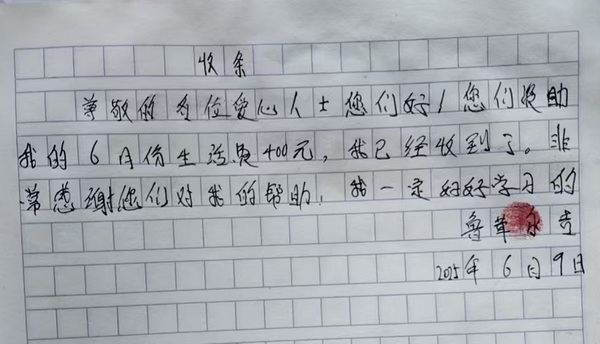 收条
尊敬的各位爱心人士您们好！您们资助
我的6月份生活费400元，我已经收到了。非
常感谢您们对我的帮助，我一定好好学习的
鲁革尔
2025年6月9日